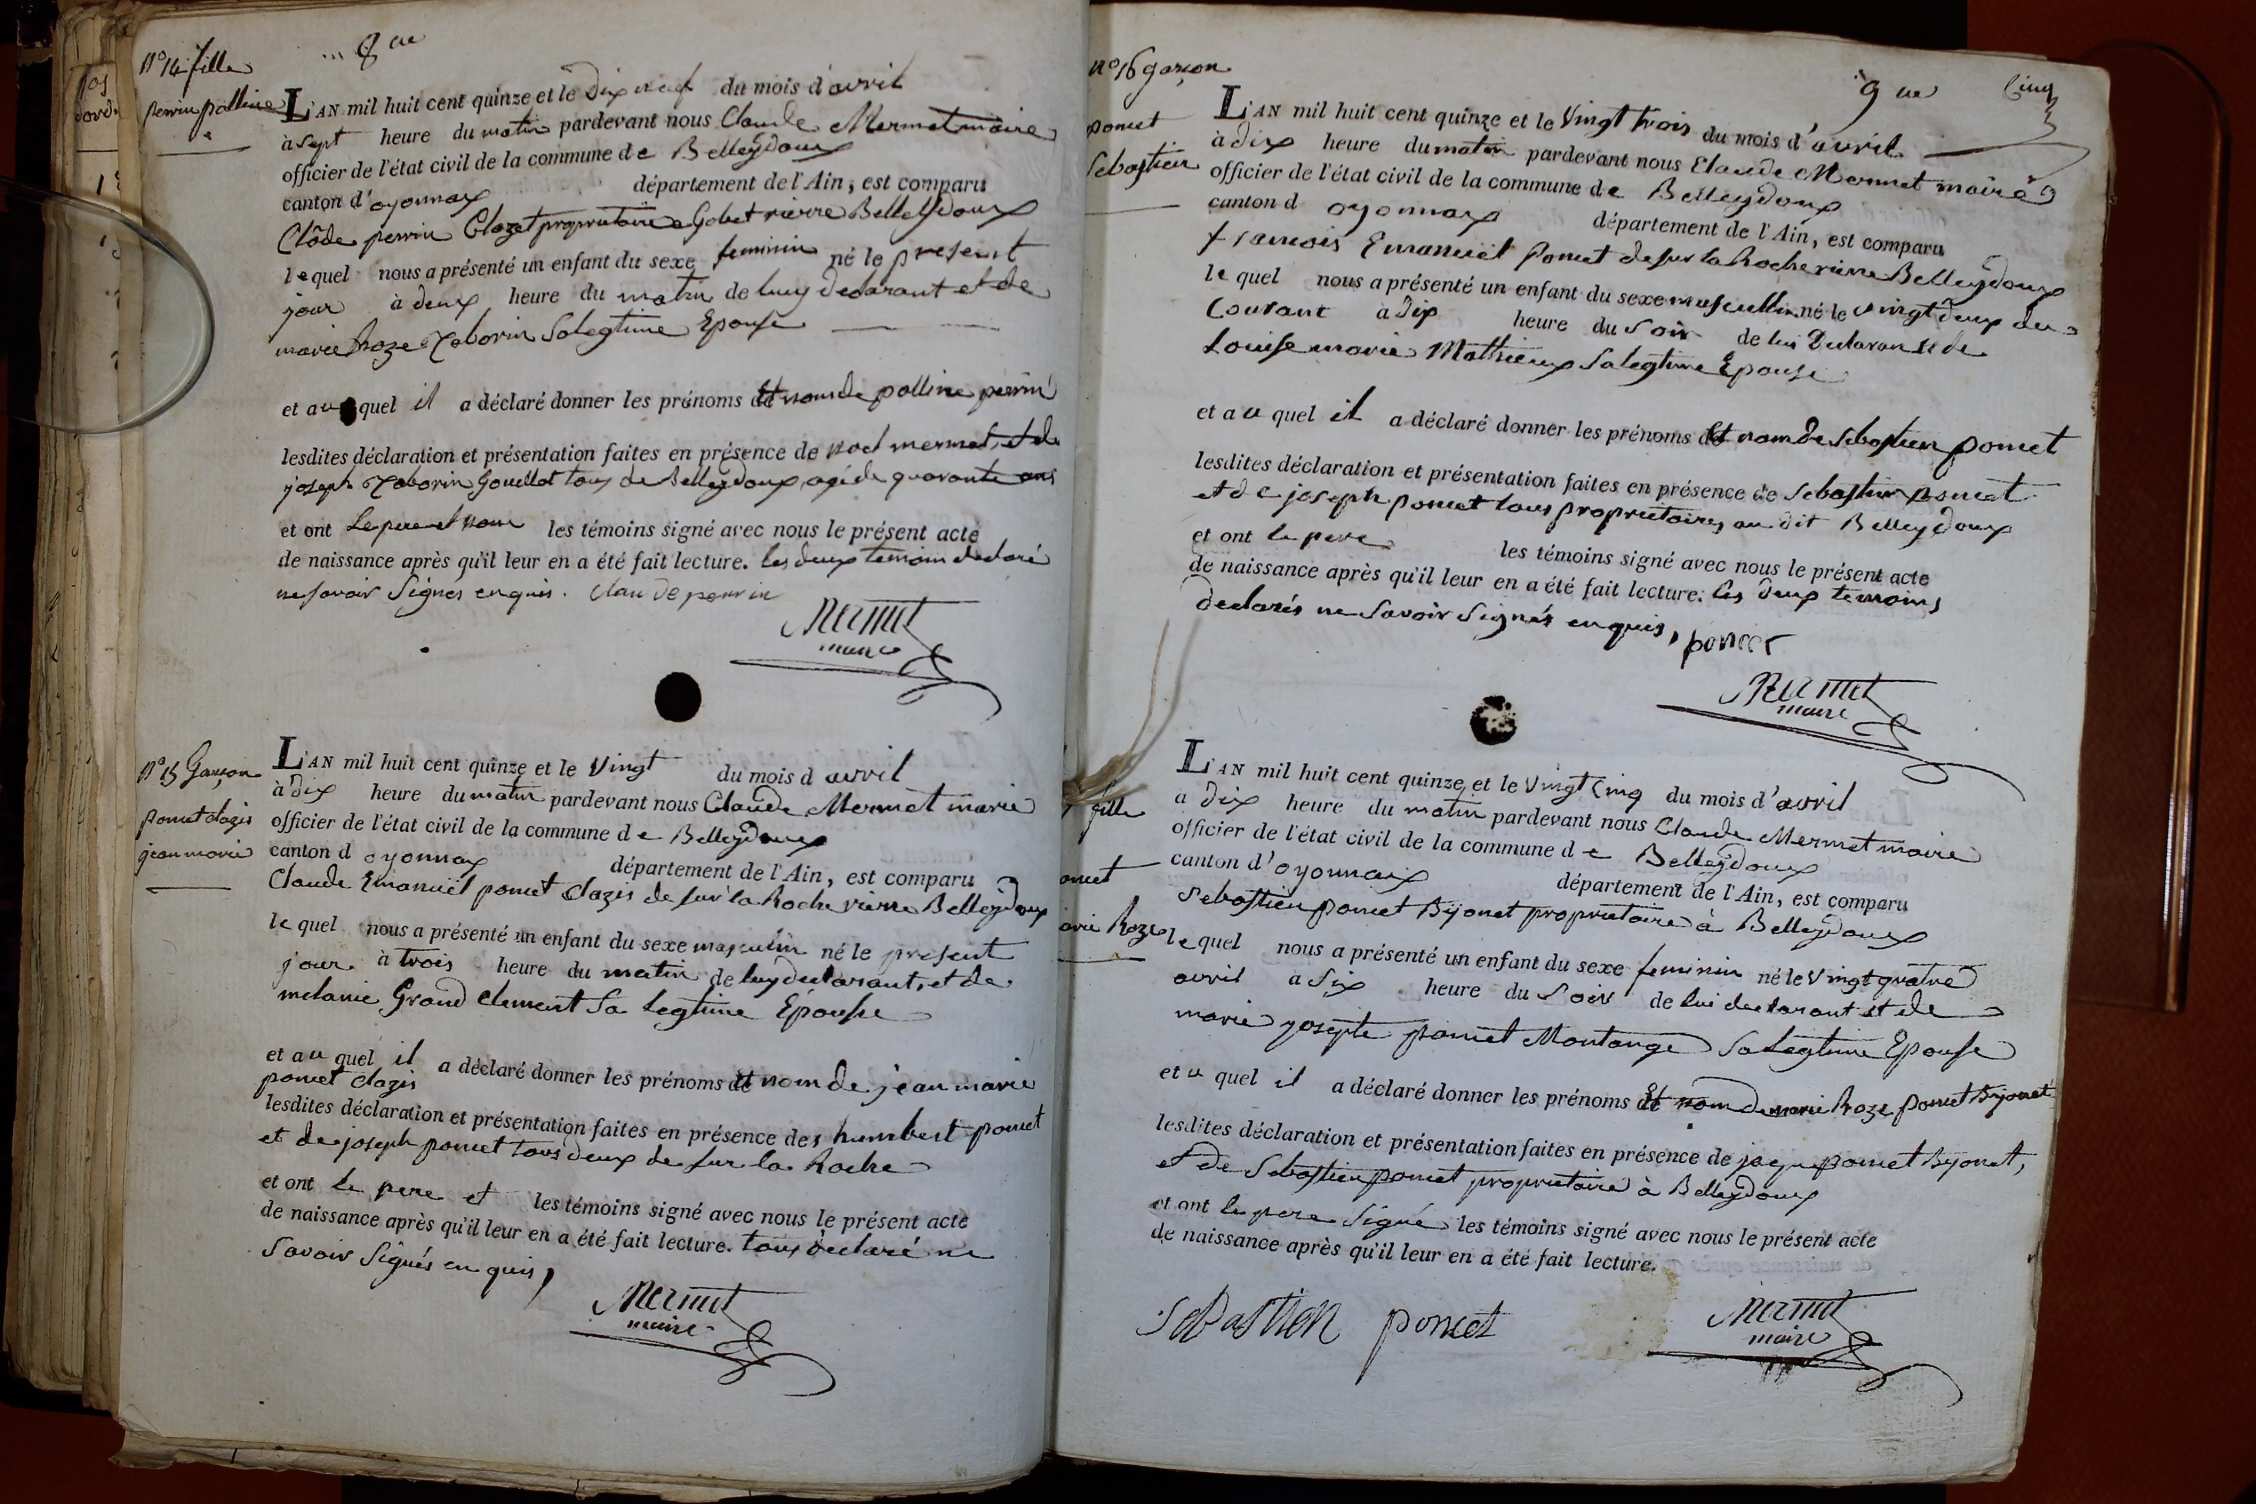 8me
N° 14 fille
perrin polline
L'AN mil huit cent quinze et le Dix neuf du mois d'avril
à sept heure du matin pardevant nous Claude Mermet maire
officier de l'état civil de la commune de Belleydoux
canton d'oyonnax département de l'Ain, est comparu
Clôde perrin Clozet proprietaire Gobet rierre Belleydoux
lequel nous a présenté un enfant du sexe feminin né le present
jour à deux heure du matin de luy declarant et de
marie Roze Taborin Sa legtime Epouse
et au quel il a déclaré donner les prénoms et nom de polline perrin
lesdites déclaration et présentation faites en présence de noel mermet, et de
joseph Taborin Gouillot tous de Belleydoux, agé de quarante ans
et ont Le pere et nom les témoins signé avec nous le présent acte
de naissance après qu'il leur en a été fait lecture. les deux temoins declaré
ne savoir Signes enquis. Clau de perrin
Mermet
maire
N° 15 Garçon
poncet clazis
jean marie
L'AN mil huit cent quinze et le Vingt du mois d avril
à Dix heure du matin pardevant nous Claude Mermet marie
officier de l'état civil de la commune de Belleydoux
canton d oyonnax département de l'Ain, est comparu
Claude Emanuël poncet Clazis de sur la Roche rierre Belleydoux
le quel nous a présenté un enfant du sexe masculin né le present
jour à trois heure du matin de luy declarant, et de
melanie Grand Clement Sa Legtime Epouse
et au quel il a déclaré donner les prénoms et nom de jean marie
poncet clazis
lesdites déclaration et présentation faites en présence des humbert poncet
et de joseph poncet tous deux de sur la Roche
et ont le pere et les témoins signé avec nous le présent acte
de naissance après qu'il leur en a été fait lecture. tous declaré ne
Savoir Signés en quis,
Mermet
maire
9me
Cinq
N° 16 garçon
poncet
Sebastien
L'AN mil huit cent quinze et le Vingt trois du mois d'avril
à Dix heure du matin pardevant nous Claude Mermet maire
officier de l'état civil de la commune de Belleydoux
canton d oyonnax département de l'Ain, est comparu
francois Emanuël Poncet de sur la Roche rierre Belleydoux
le quel nous a présenté un enfant du sexe masculin né le vingt deux du
Courant à Dix heure du Soir de lui Declarant et de
Louise marie Mathieux Sa legtime Epouse
et au quel il a déclaré donner les prénoms et nom de Sebastien poncet
lesdites déclaration et présentation faites en présence de Sebastien poncet
et de joseph poncet tous proprietaires au dit Belleydoux
et ont le pere les témoins signé avec nous le présent acte
de naissance après qu'il leur en a été fait lecture. les deux temoins
declarés ne Savoir Signés enquis, poncet
Mermet
maire
fille
oncet
arie Roze
L'AN mil huit cent quinze et le Vingt Cinq du mois d'avril
a Dix heure du matin pardevant nous Claude Mermet maire
officier de l'état civil de la commune de Belleydoux
canton d'oyonnax département de l'Ain, est comparu
Sebastien poncet Bijonet proprietaire à Belleydoux
le quel nous a présenté un enfant du sexe feminin né le Vingt quatre
avril a Six heure du Soir de lui declarant et de
marie josephte poncet Montange Sa Legtime Epouse
et u quel il a déclaré donner les prénoms et nom de marie Roze poncet Bijonet
lesdites déclaration et présentation faites en présence de jaque poncet Bijonet,
et de Sebastien poncet proprietaire à Belleydoux
et ont le pere Signé les témoins signé avec nous le présent acte
de naissance après qu'il leur en a été fait lecture.
Sebastien poncet
Mermet
maire